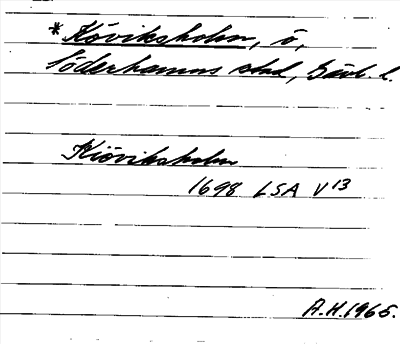 *Köviksholm, ö,
Söderhamns stad, Gävl. l.
Kiöviksholm
1698 LSA V 13
A.H. 1965.